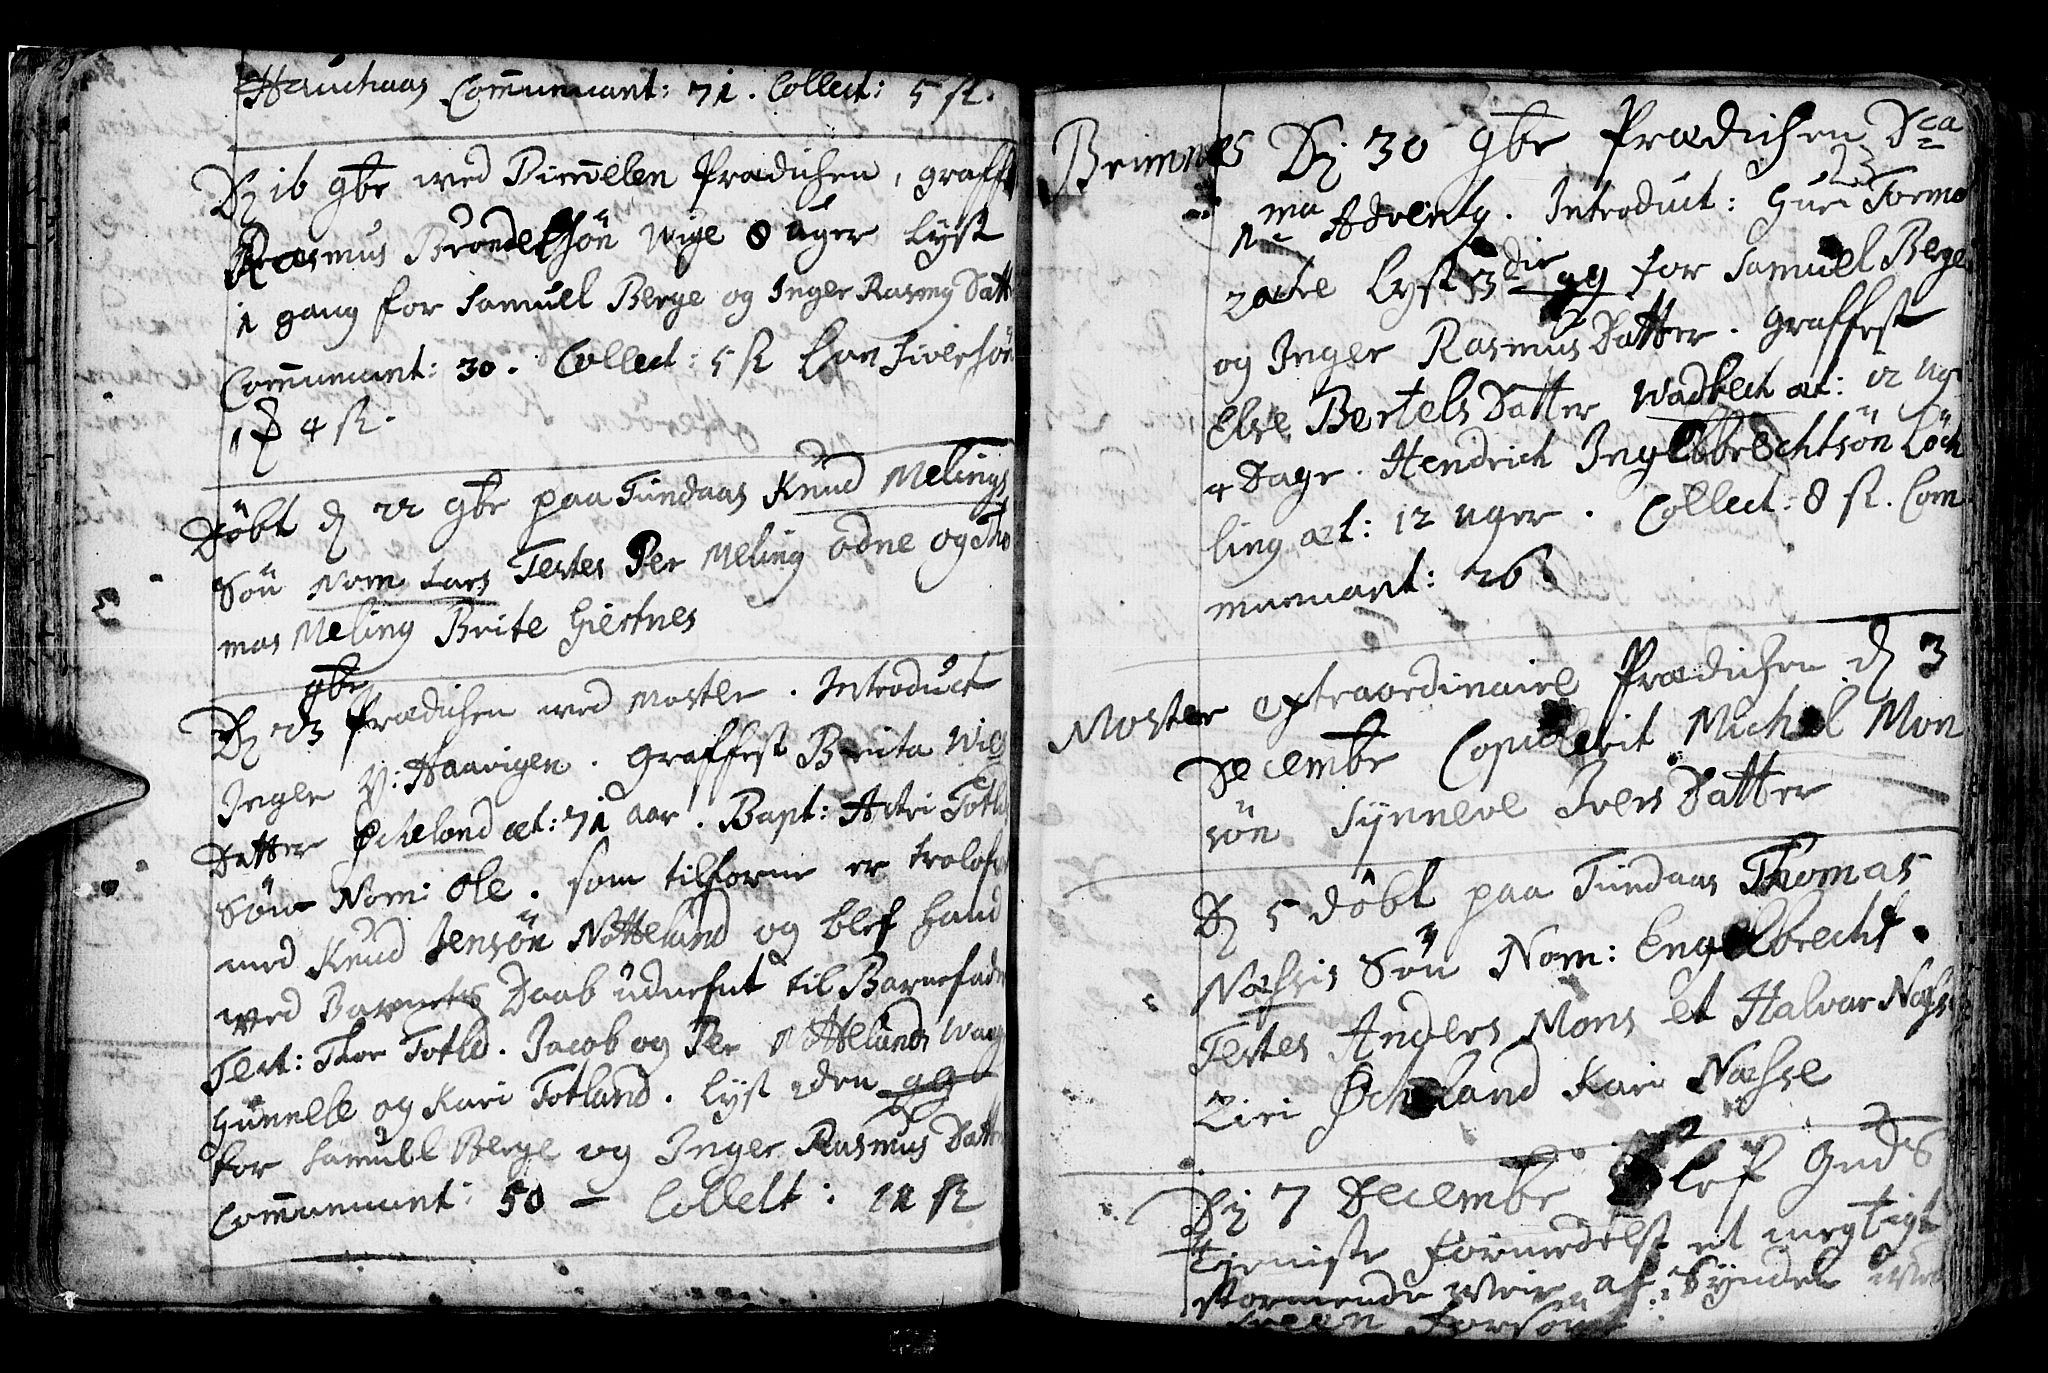 Hauchaas Com̄unicant: 71. Collect: 5 ſl.
Dj 16 9br wed Bim̄elen Prædichen, graffſt
Rasmus Brondelsön wige 8 uger Lyst
1 gang for Samuel Berge og Inger Rasmus Datt
Com̄unicant: 30. Collect: 5 ſl Iversön
4 ſl.
Döbt dj 22 9br paa Tindaas Knud Melings
Sön Nom Lars Testes Per Meling Odne og Tho
mas Meling Brite Giertnes
9br
Dj 23 Prædichen wed Moster. Introduct
Inger V: Haavigen. Graffest Brita Wils
Datter Öcheland æt: 71 aar. Bapt: Astri Totl
Sön Nom: Ole. som tilforne er trolof
med Knud Jensön Nötteland og blef hand
wed Barnets Daab udnefnt til Barnefade
Test: Thor Totld. Jacob og Per Nötteland
Gunnele og Kari Totland. Lyst 2den gg
for Samuel Berge og Inger Rasmus Datt
Com̄unicant: 50 – Collekt: 11 ſl
Brimnes Dj 30 9br Prædichen Dca
1ma Adventq. Introduct: Guri Tormo
Lyst 3die gg for Samuel Berge
og Inger Rasmus Datter. Graffest
Else Bertels Datter Wadbech æt: 12 ug
4 Dage. Hendrich Ingelbbrechtsön Löch
ling æt: 12 uger. Collect: 8 ſl. Com
municant: 26.
Moster extraordinaire Prædichen dj 3
Decembr Copulerit Michel Mon
sön Synneve Ivers Datter
Dj 5 döbt paa Tindaas Thomas
Næsses Sön Nom: Engelbrecht.
Testes Anders Mons et Halvar Næss
Ziri Öcheland Kari Næsse
Dj 7 Decembr blef Guds
tieniste formedelst et megtigt
stormende weir af Synden
forsömt